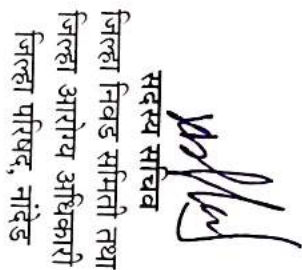 सदस्य सचिव
जिल्हा निवड समिती तथा
जिल्हा आरोग्य अधिकारी
जिल्हा परिषद, नांदेड